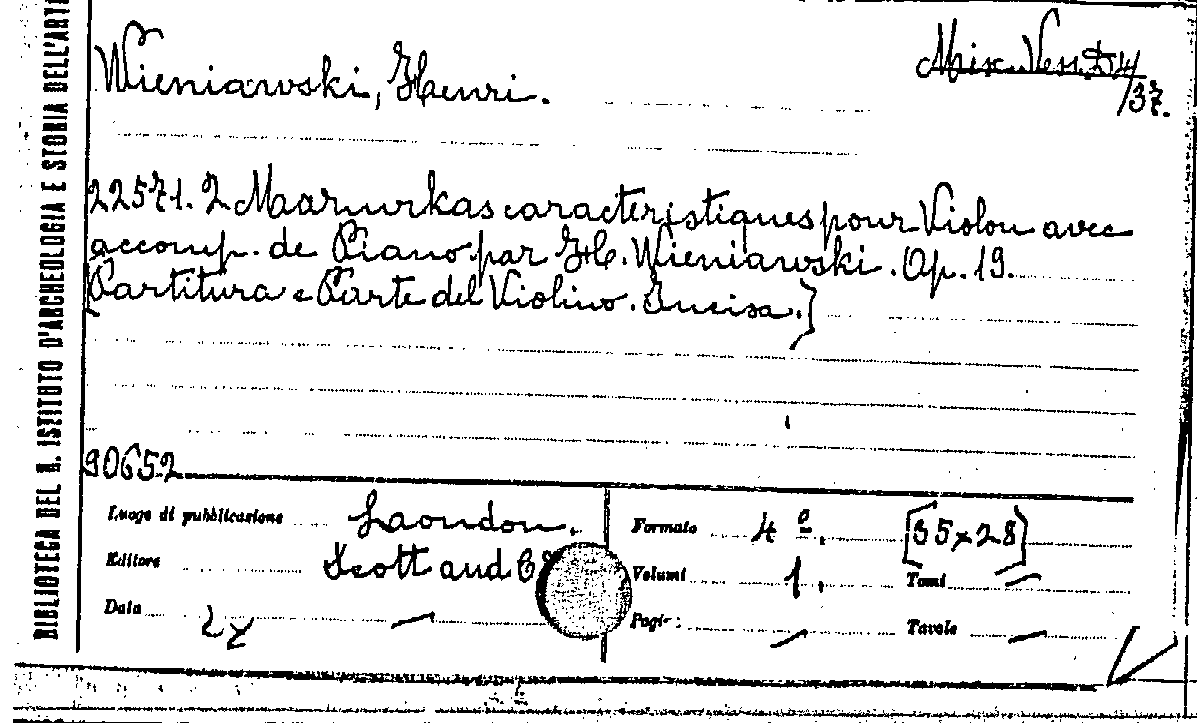 BIBLIOTECA DEL R. ISTITUTO D'ARCHEOLOGIA E STORIA DELL'ARTE
Wieniawski, Henri.
Misc. Vess. D 14/37.
22571. 2 Mazurkas caracteristiques pour Violon avec
accomp. de Piano par H. Wieniawski. Op. 19.
[Partitura e Parte del Violino. Incisa.]
90652
Luogo di pubblicazione London.
Editore Scott and Co
Data
Formato 4º. [35x28]
Volumi 1. Tomi
Pagi- : Tavole